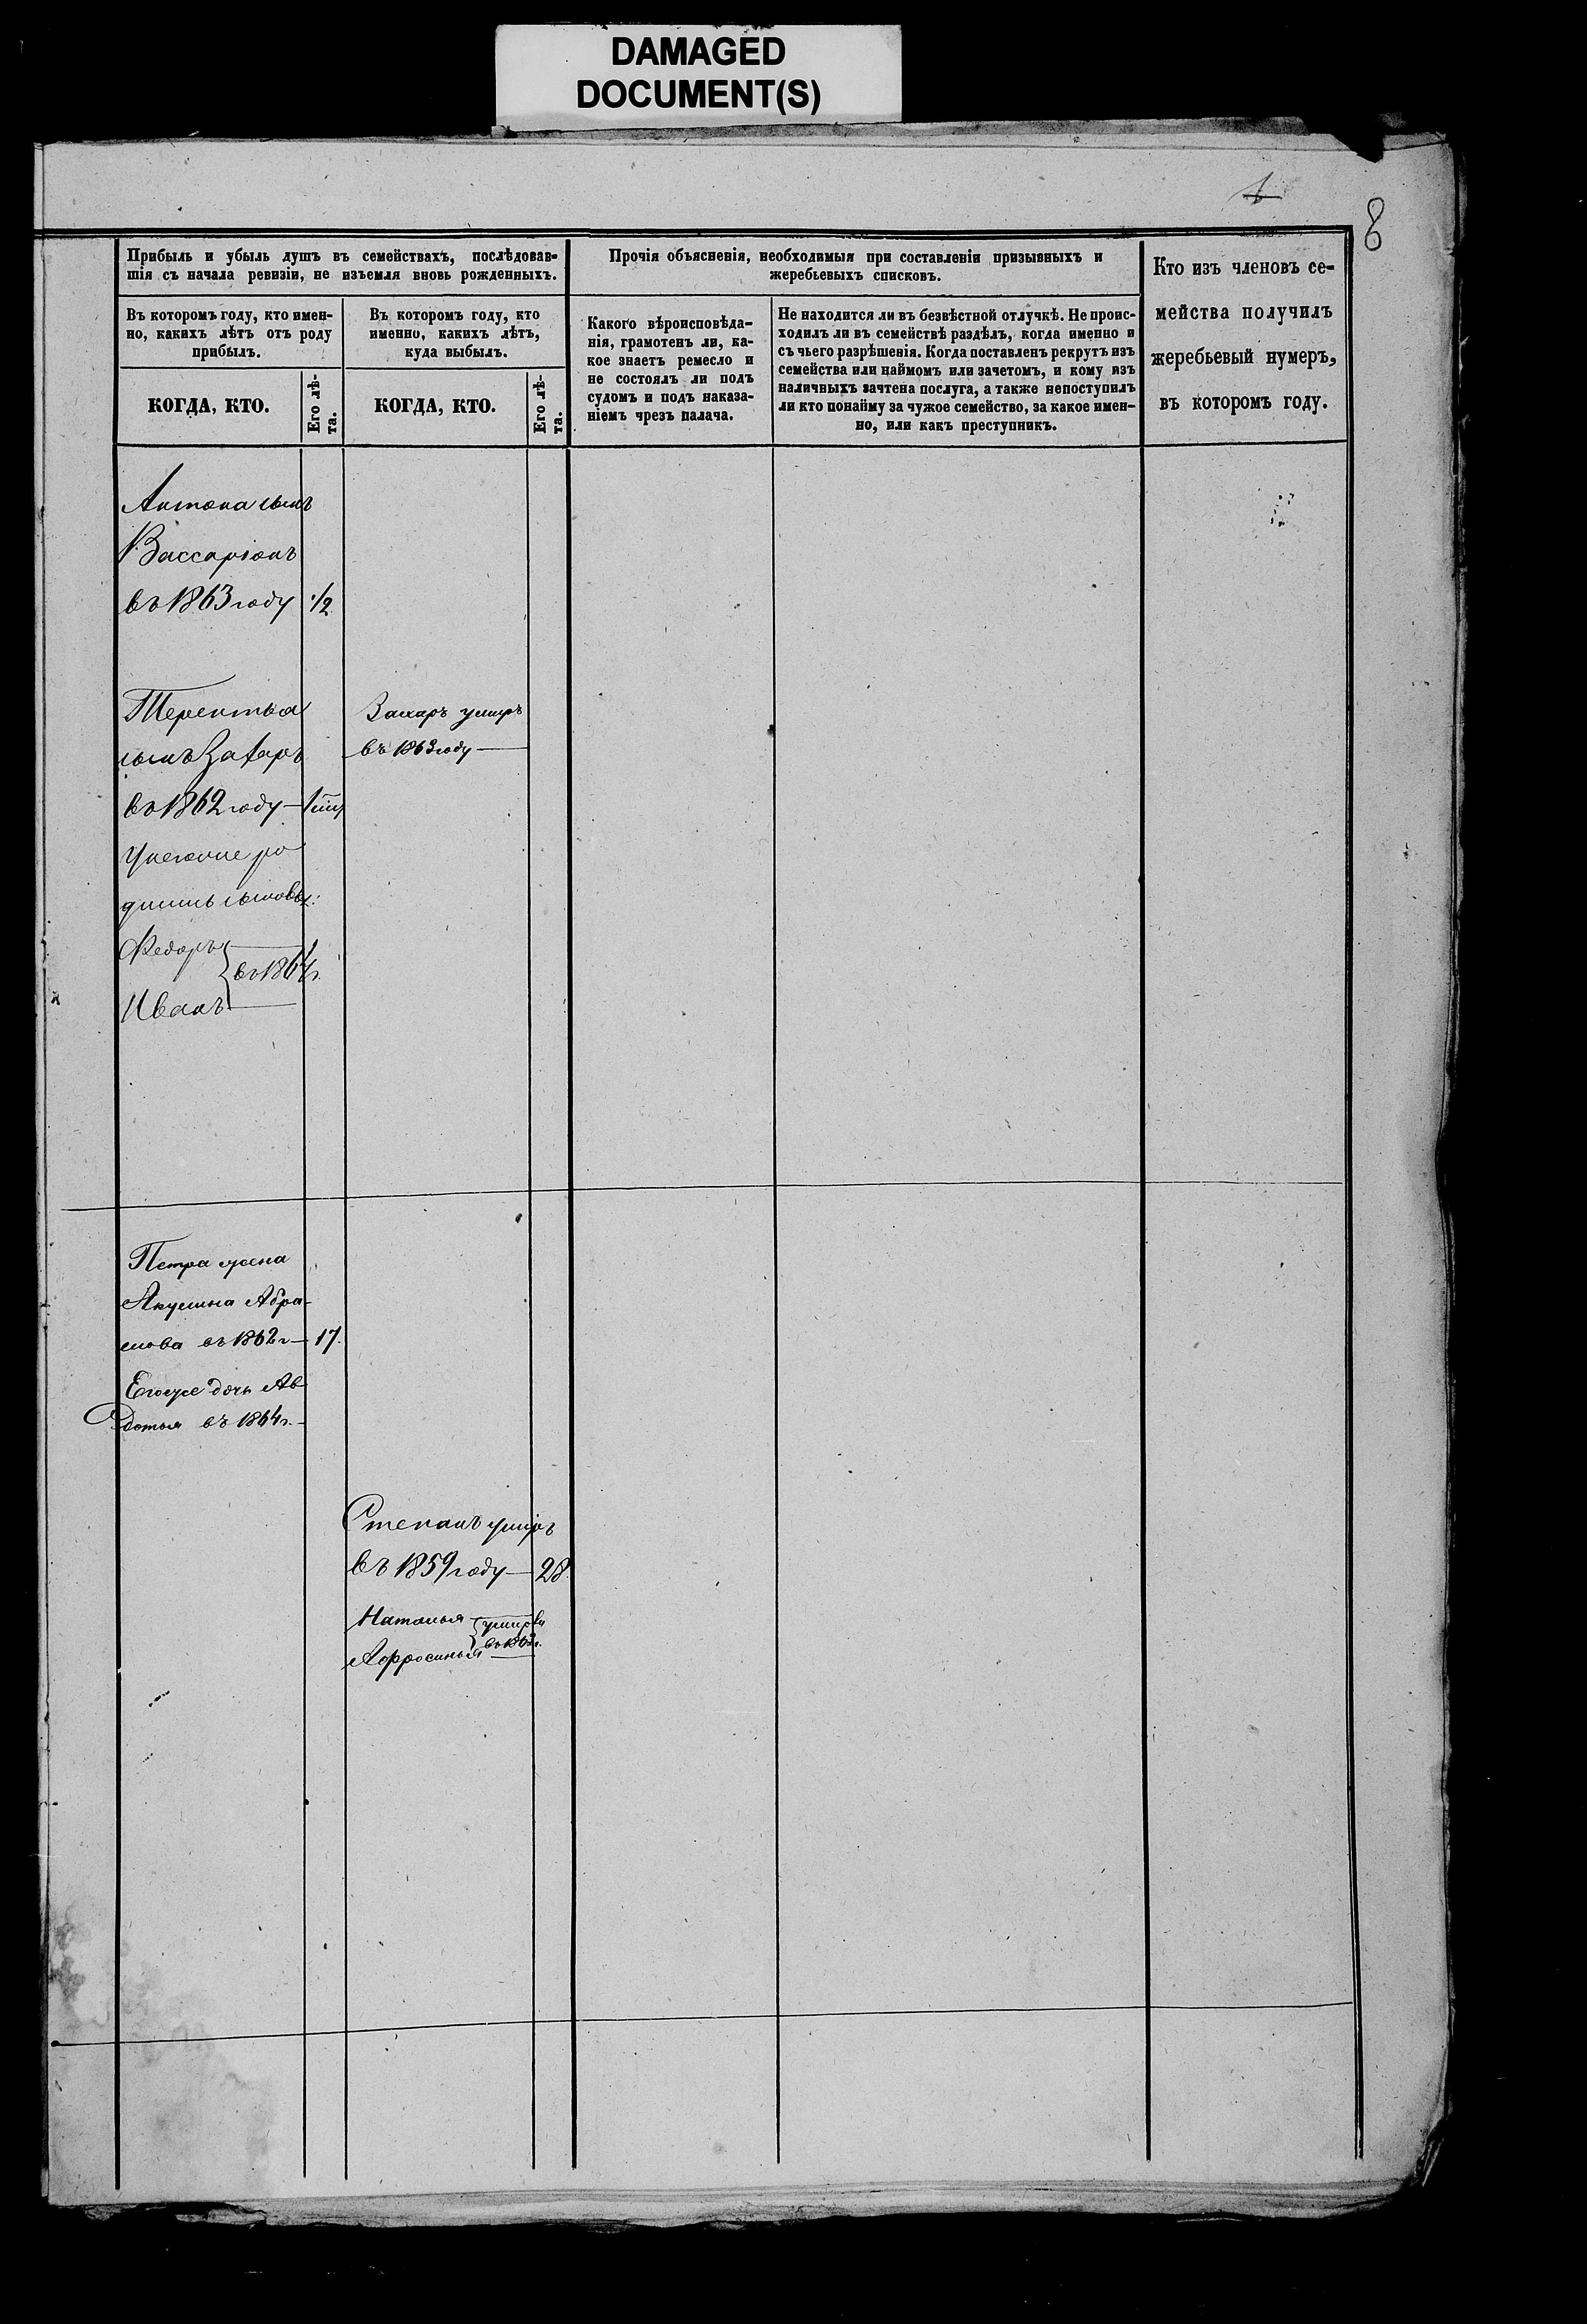 DAMAGED
DOCUMENT(S)
8
Прибыль и убыль душъ въ семействахъ, послѣдовав-
шія съ начала ревизіи, не изъемля вновь рожденныхъ.
Въ которомъ году, кто имен-
но, какихъ лѣтъ отъ роду
прибылъ.
КОГДА, КТО.
Его лѣ-
та.
Въ которомъ году, кто
именно, какихъ лѣтъ,
куда выбылъ.
КОГДА, КТО.
Его лѣ-
та.
Прочія объясненія, необходимыя при составленіи призывныхъ и
жеребьевыхъ списковъ.
Какого вѣроисповѣда-
нія, грамотенъ ли, ка-
кое знаетъ ремесло и
не состоялъ ли подъ
судомъ и подъ наказа-
ніемъ чрезъ палача.
Не находится ли въ безвѣстной отлучкѣ. Не проис-
ходилъ ли въ семействѣ раздѣлъ, когда именно и
съ чьего разрѣшенія. Когда поставленъ рекрутъ изъ
семейства или наймомъ или зачетомъ, и кому изъ
наличныхъ зачтена послуга, а также непоступилъ
ли кто понайму за чужое семейство, за какое имен-
но, или какъ преступникъ.
Кто изъ членовъ се-
мейства получилъ
жеребьевый нумеръ,
въ которомъ году.
Антона сынъ
Вассаріонъ
въ 1863 году 1/2
Терентья
сынъ Захаръ
въ 1862 году —
Захаръ умеръ
въ 1863 году —
ро
дились сыновья:
Федоръ
въ 1864 г.
Иванъ
Петра жена
Акулина Абра-
мова въ 1862 г — 17.
Егоже дочь Ав
дотья въ 1864 г. -
Степанъ умеръ
въ 1859 году — 28.
Наталья умерли
Афросинья